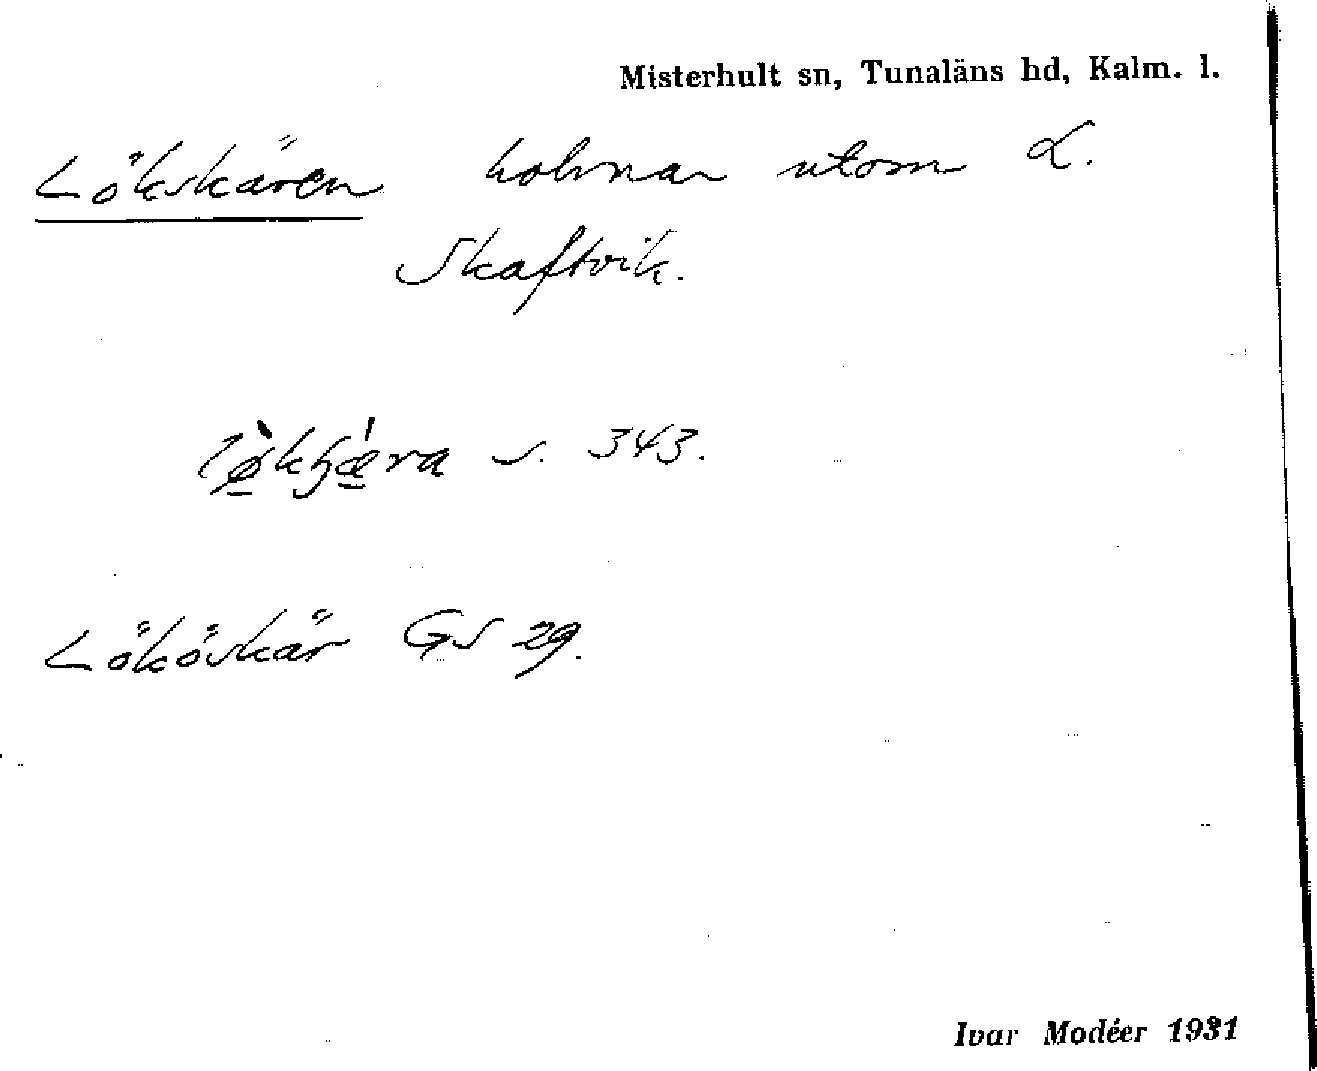 Misterhult sn, Tunaläns hd, Kalm. l.
Lökskären holmar utom L.
Skaftvik.
s. 343.
Lököskär GS 29.
Ivar Modéer 1931